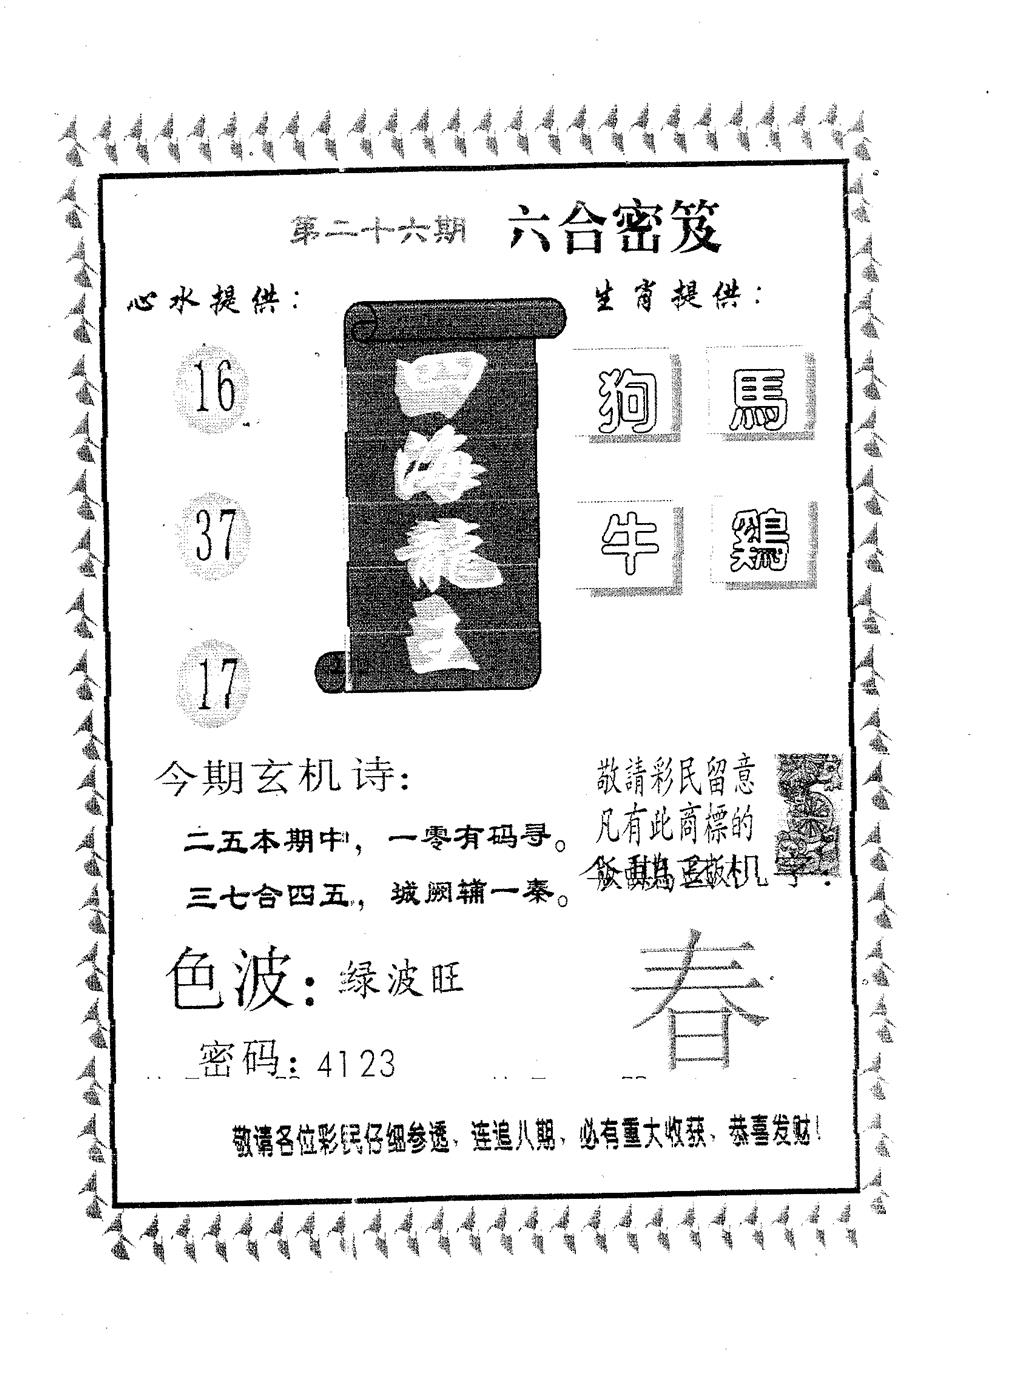 第二十六期 六合密笈
心水提供：
生肖提供：
16
37
17
四海龍王
狗 馬
牛 鷄
今期玄机诗：
二五本期中，一零有码寻。
三七合四五，城阙辅一秦。
敬請彩民留意
凡有此商標的
色波：绿波旺
春
密码：4123
敬请各位彩民仔细参透、连追八期、必有重大收获、恭喜发财！